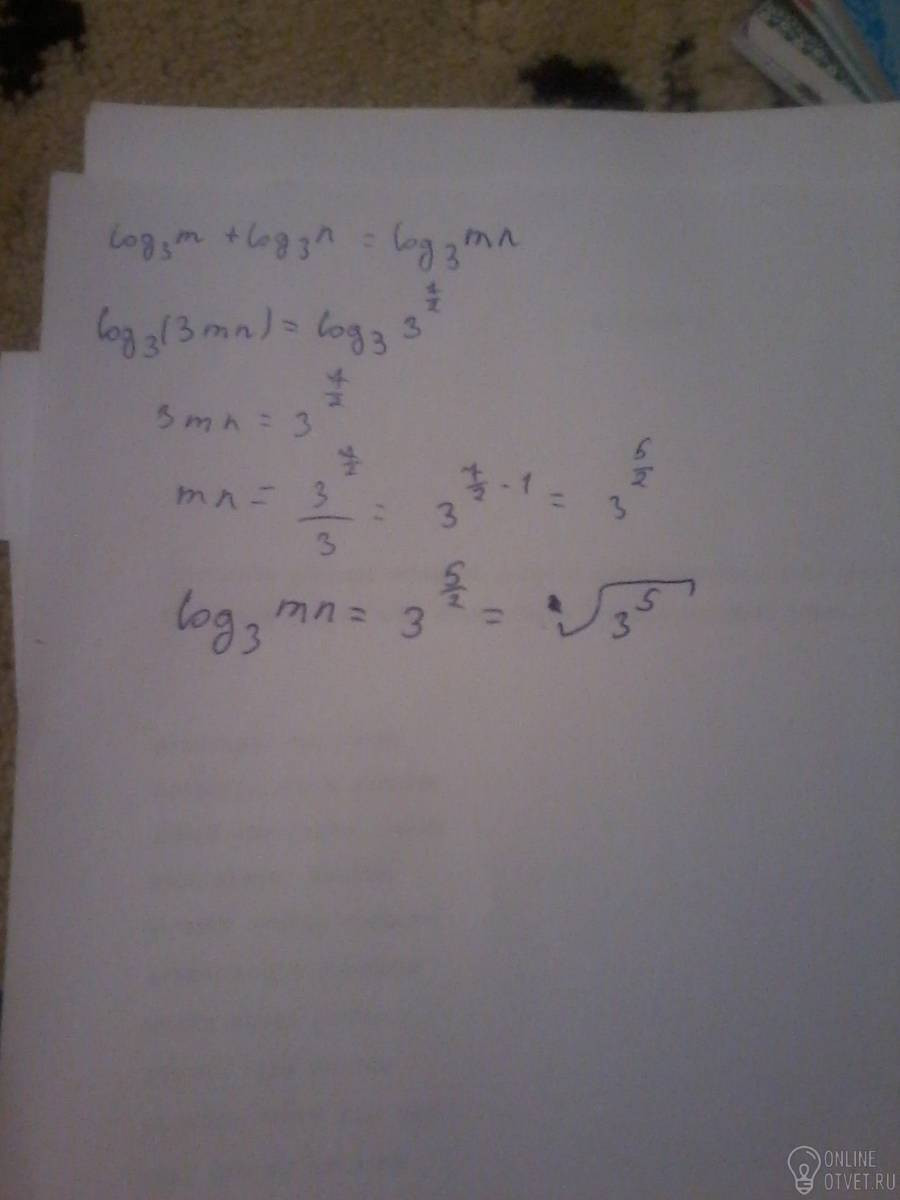 log₃m + log₃n = log₃mn
log₃(3mn) = log₃3^(7/2)
3mn = 3^(7/2)
mn = 3^(7/2)/3 = 3^(7/2 - 1) = 3^(5/2)
log₃mn = 3^(5/2) = √(3^5)
ONLINE
OTVET.RU